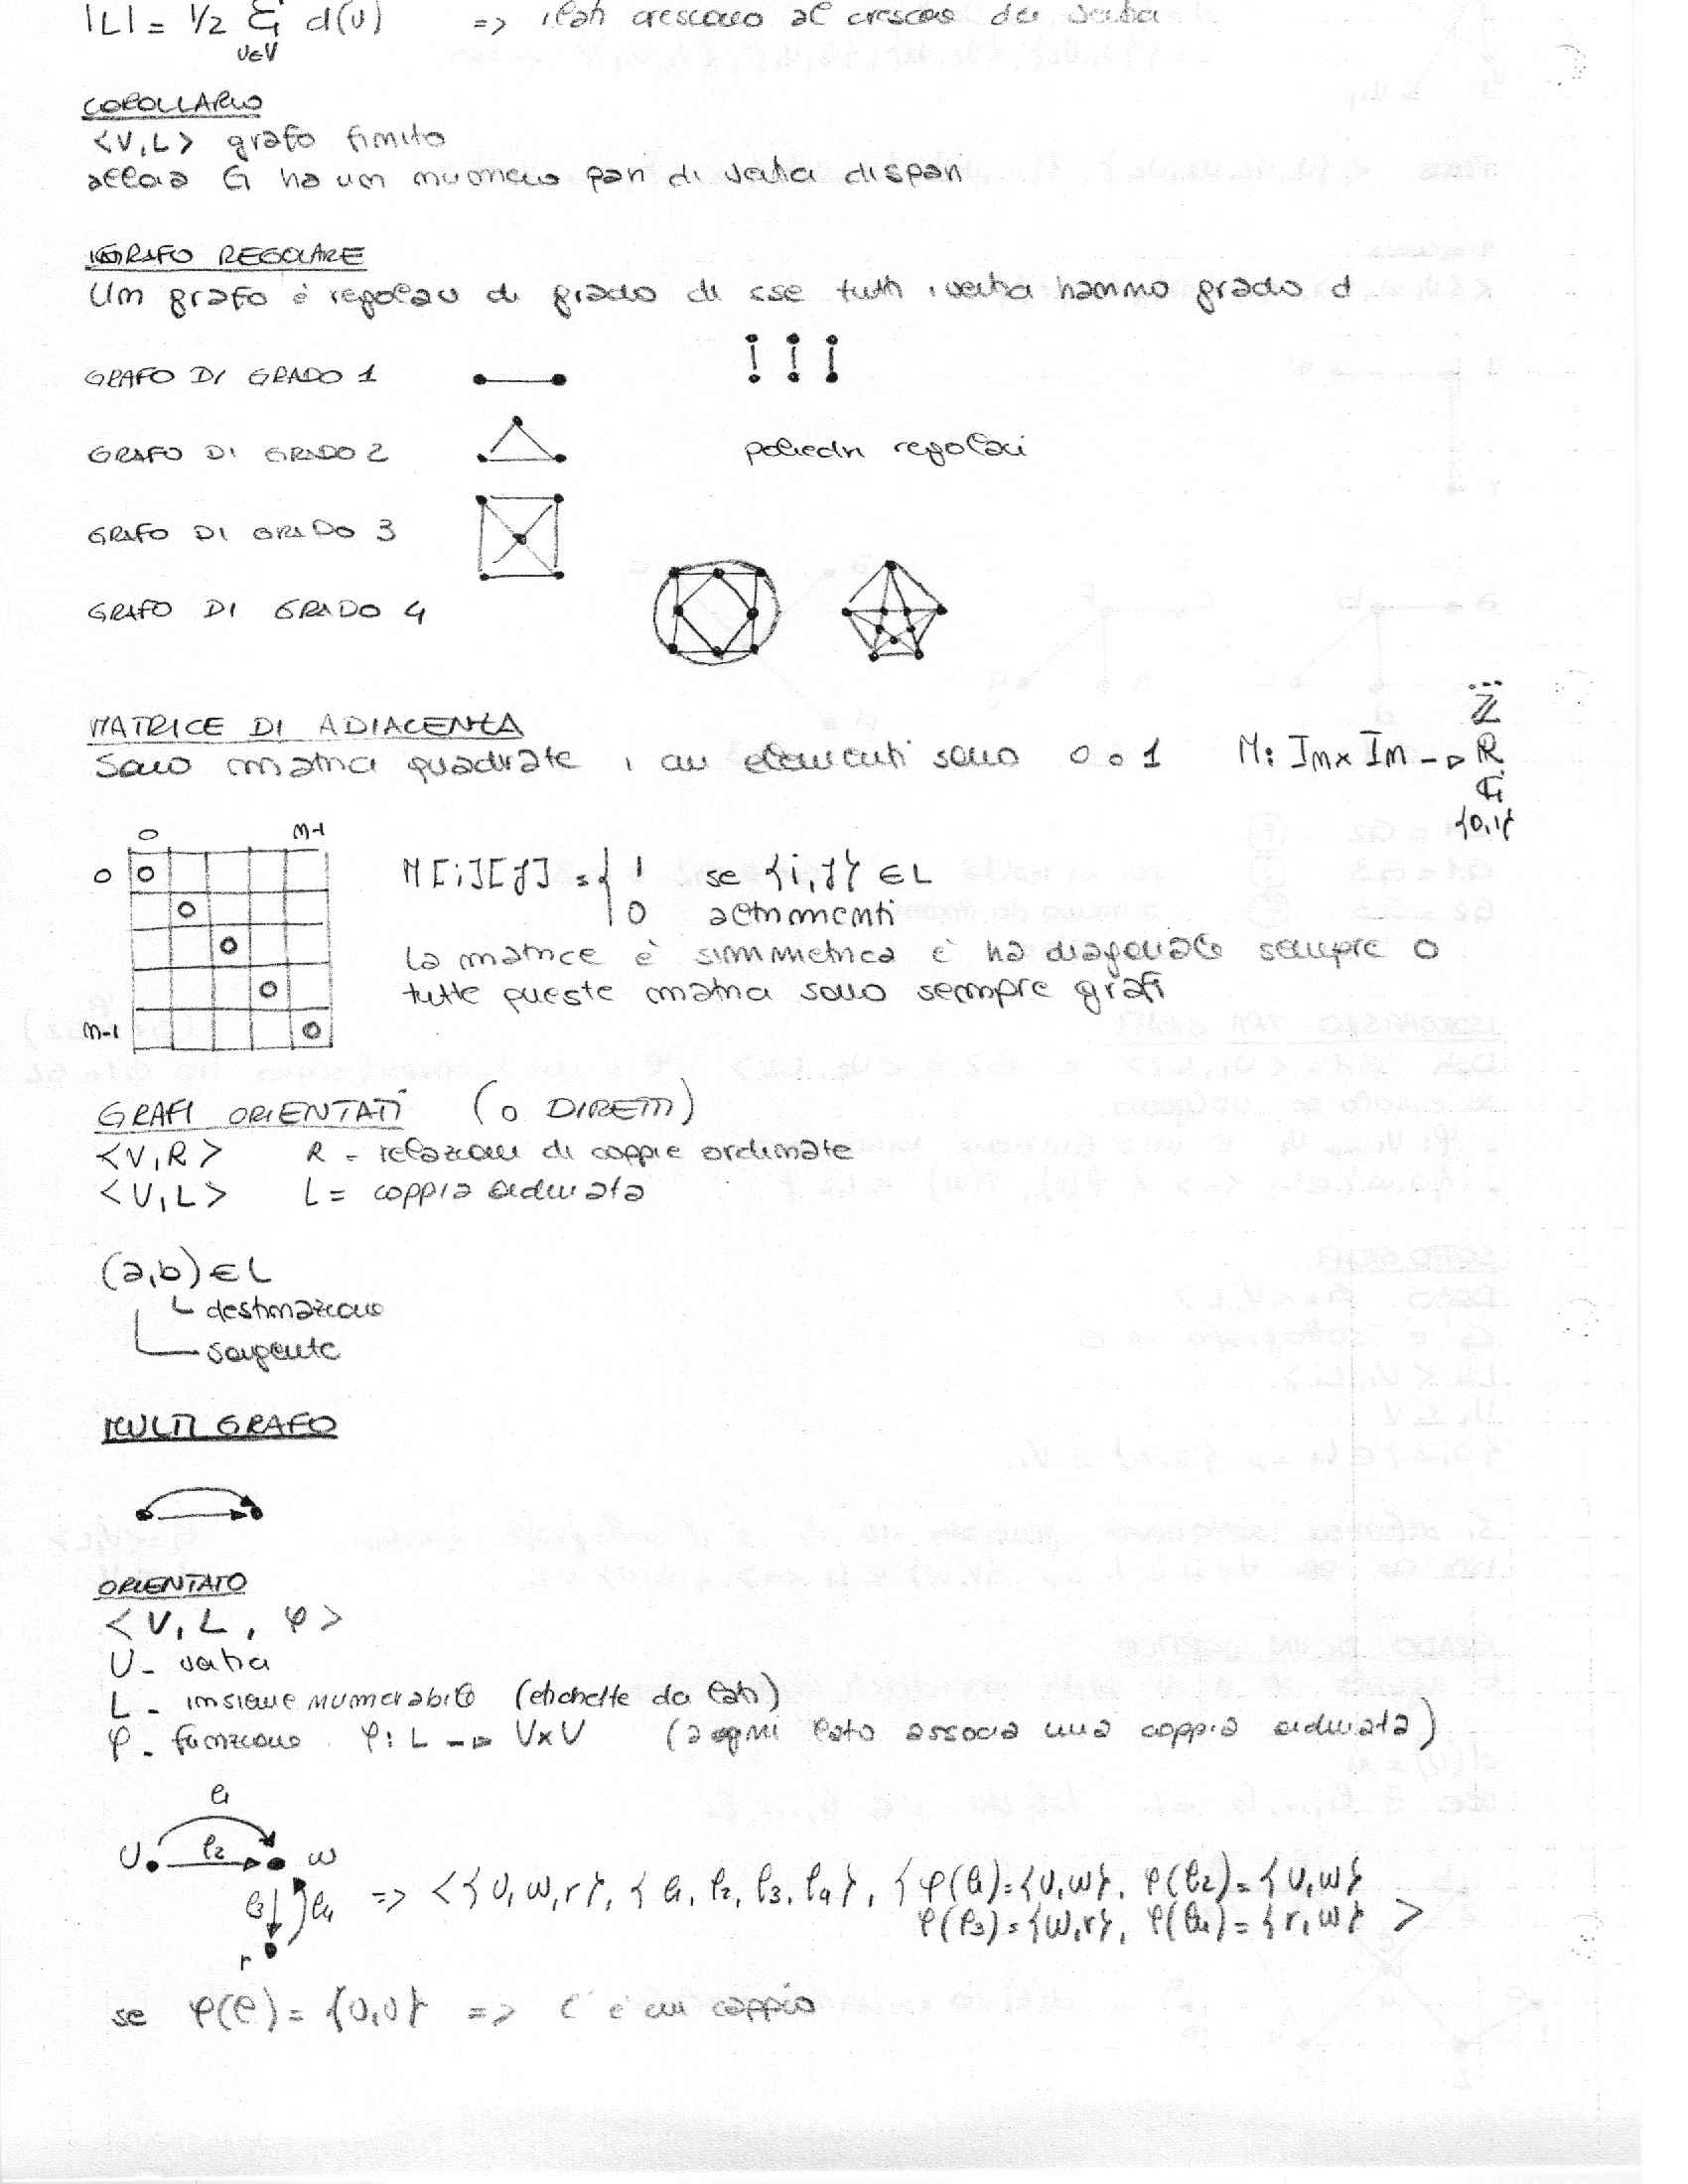 |L| = 1/2 Σ d(v) => i lati crescono al crescere dei vertici
v∈V
COROLLARIO
<V,L> grafo finito
allora G ha un numero pari di vertici dispari
GRAFO REGOLARE
Un grafo è regolare di grado d sse tutti i vertici hanno grado d
GRAFO DI GRADO 1
GRAFO DI GRADO 2 poliedri regolari
GRAFO DI GRADO 3
GRAFO DI GRADO 4
MATRICE DI ADIACENZA
...
Z
Sono matrici quadrate i cui elementi sono 0 o 1 M: In x In -> R
C
{0,1}
0 n-1
0 0
0
0
0
n-1 0
M[i][j] = { 1 se {i,j} ∈ L
0 altrimenti
la matrice è simmetrica e ha diagonale sempre 0
tutte queste matrici sono sempre grafi
GRAFI ORIENTATI (o DIRETTI)
<V,R> R = relazioni di coppie ordinate
<V,L> L = coppia ordinata
(a,b) ∈ L
destinazione
sorgente
MULTI GRAFO
ORIENTATO
<V, L, φ>
V - vertici
L - insieme numerabile (etichette dei lati)
φ - funzione φ: L -> VxV (a ogni lato associa una coppia ordinata)
l1
v l2 w
l3 l4
r
=> <{v,w,r}, {l1, l2, l3, l4}, {φ(l1)={v,w}, φ(l2)={v,w}
φ(l3)={w,r}, φ(l4)={r,w} >
se φ(l) = {v,v} => l è un cappio